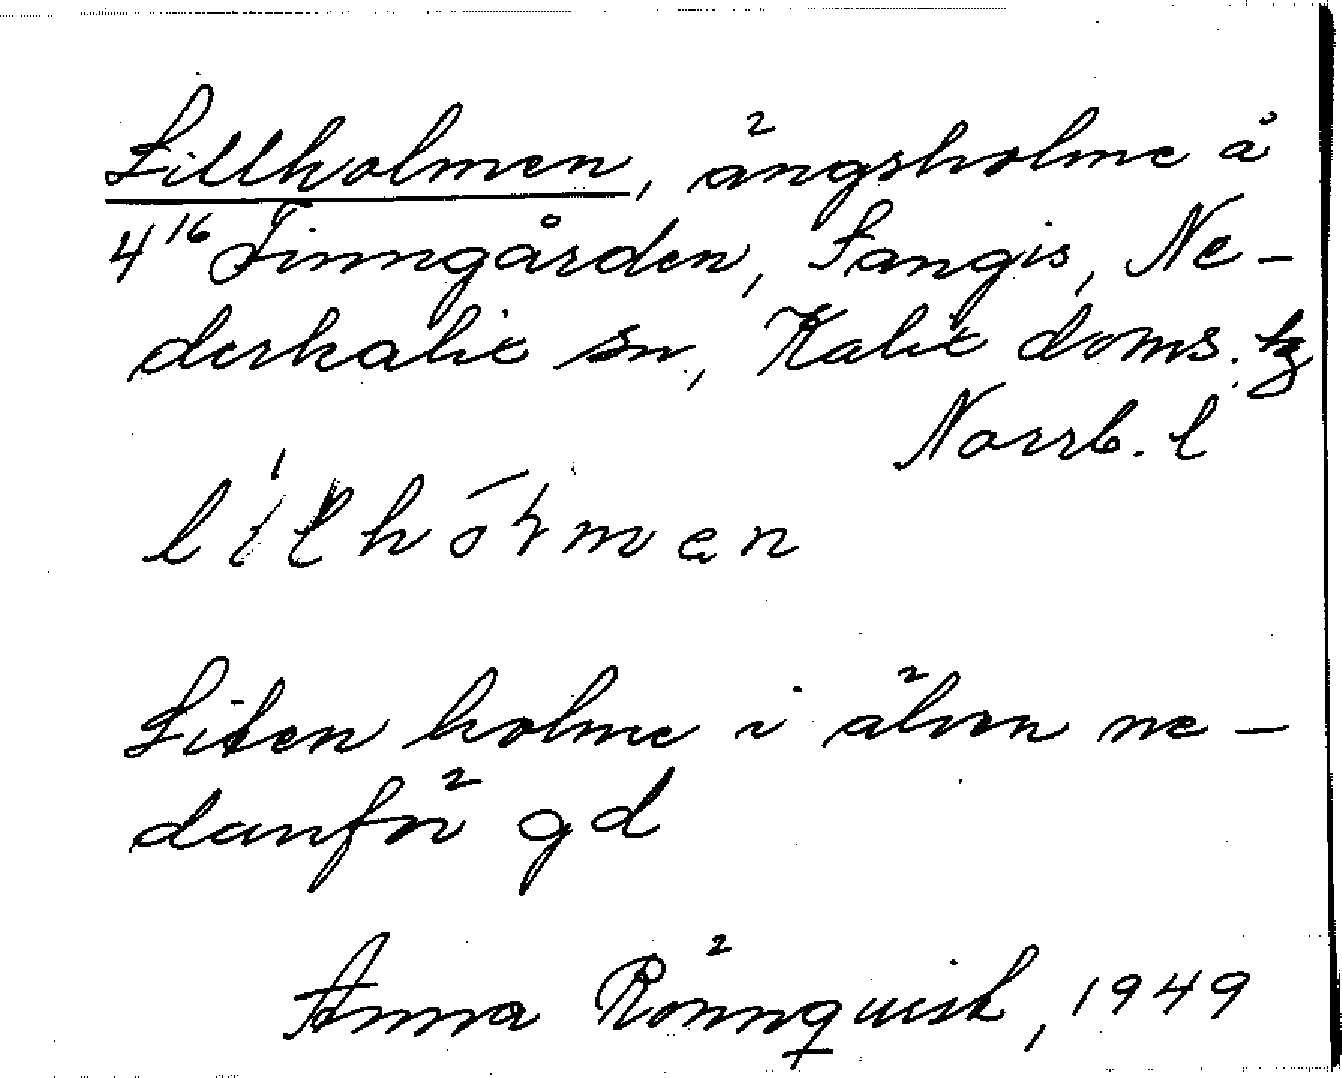 Lillholmen, ängsholme å
4¹⁶ Finngården, Sangis, Ne-
derkalix sn, Kalix doms. tg
Norrb. l
Liten holme i älven ne-
danför gd
Anna Rönnquist, 1949